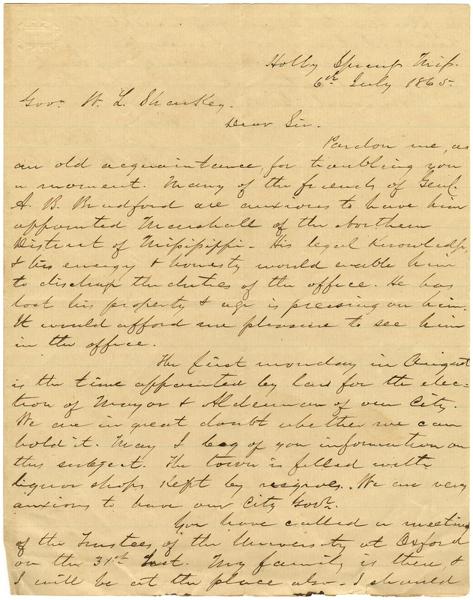 Holly Springs Miss.
6th July 1865.
Gov. W. L. Sharkey.
Dear Sir.
Pardon me, as
an old acquaintance, for troubling you
a moment. Many of the friends of Genl.
A. B. Bradford are anxious to have him
appointed Marshall of the Northern
District of Mississippi - His legal knowledge
& his energy & honesty would enable him
to discharge the duties of the office. He has
lost his property & age is pressing on him.
It would afford me pleasure to see him
in the office.
The first monday in August
is the time appointed by law for the elec-
tion of Mayor & Aldermen of our City.
We are in great doubt whether we can
hold it. May I beg of you information on
this subject. The town is filled with
liquor shops kept by negroes. We are very
anxious to have our City Govt.
You have called a meeting
of the Trustees of the University at Oxford
on the 31st Inst. My family is there, &
I will be at the place also - I should